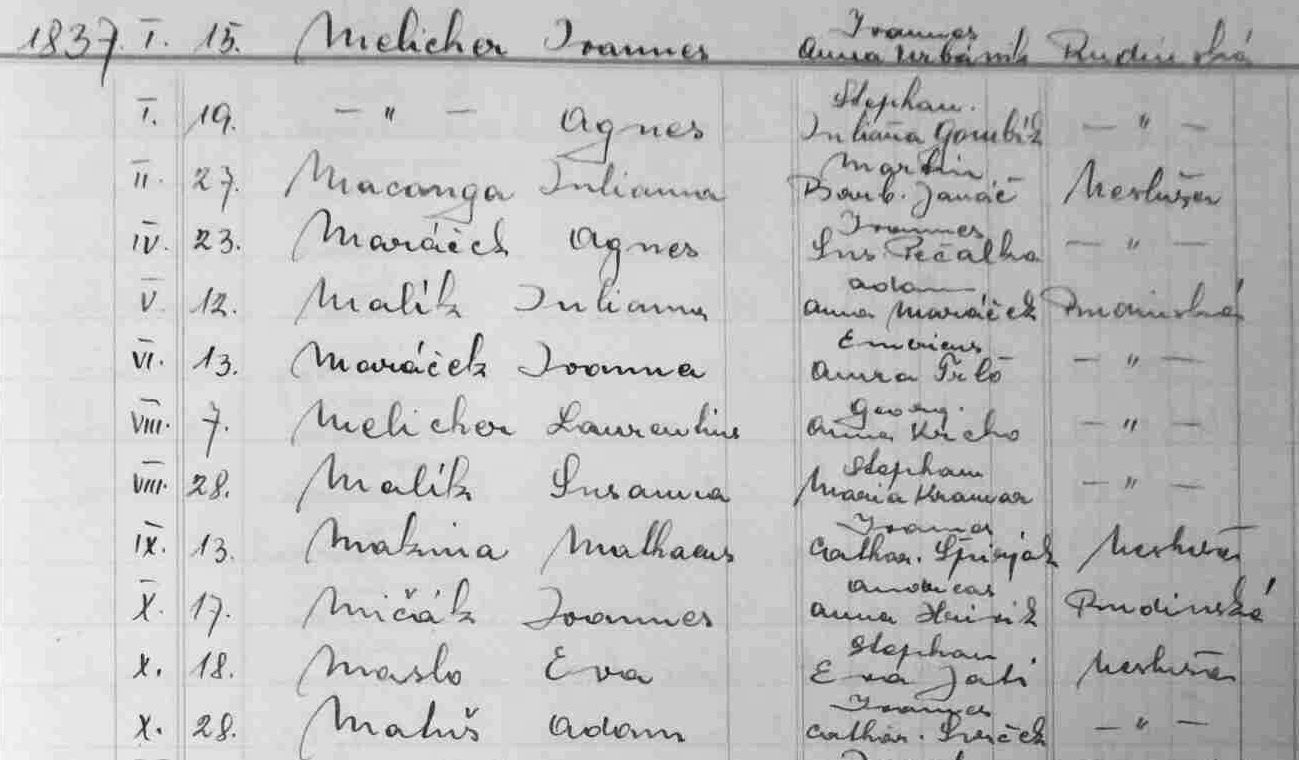 1837. I. 15. Melicher Joannes Joannes
Anna Urbánik Rudinská
I. 19. — " — Agnes Stephan.
Juliana Gombík — " —
II. 27. Macanga Julianna Martin
Barb. Janáč Nesluša
IV. 23. Maráček Agnes Joannes
Sus. Pečalka — " —
V. 12. Malík Julianna Adam
Anna Maráček Rudinská
VI. 13. Maráček Joanna Emericus
Anna — " —
VIII. 7. Melicher Laurentius Georg.
Anna Kricho — " —
VIII. 28. Malík Susanna Stephan
Maria Kramar — " —
IX. 13. Makina Mathaeus Joannes
Cathar. Špirják Nesluša
X. 17. Mičák Joannes Andreas
Anna Rudinská
X. 18. Maslo Eva Stephan
Eva Nesluša
X. 28. Matuš Adam Joannes
Cathar. — " —